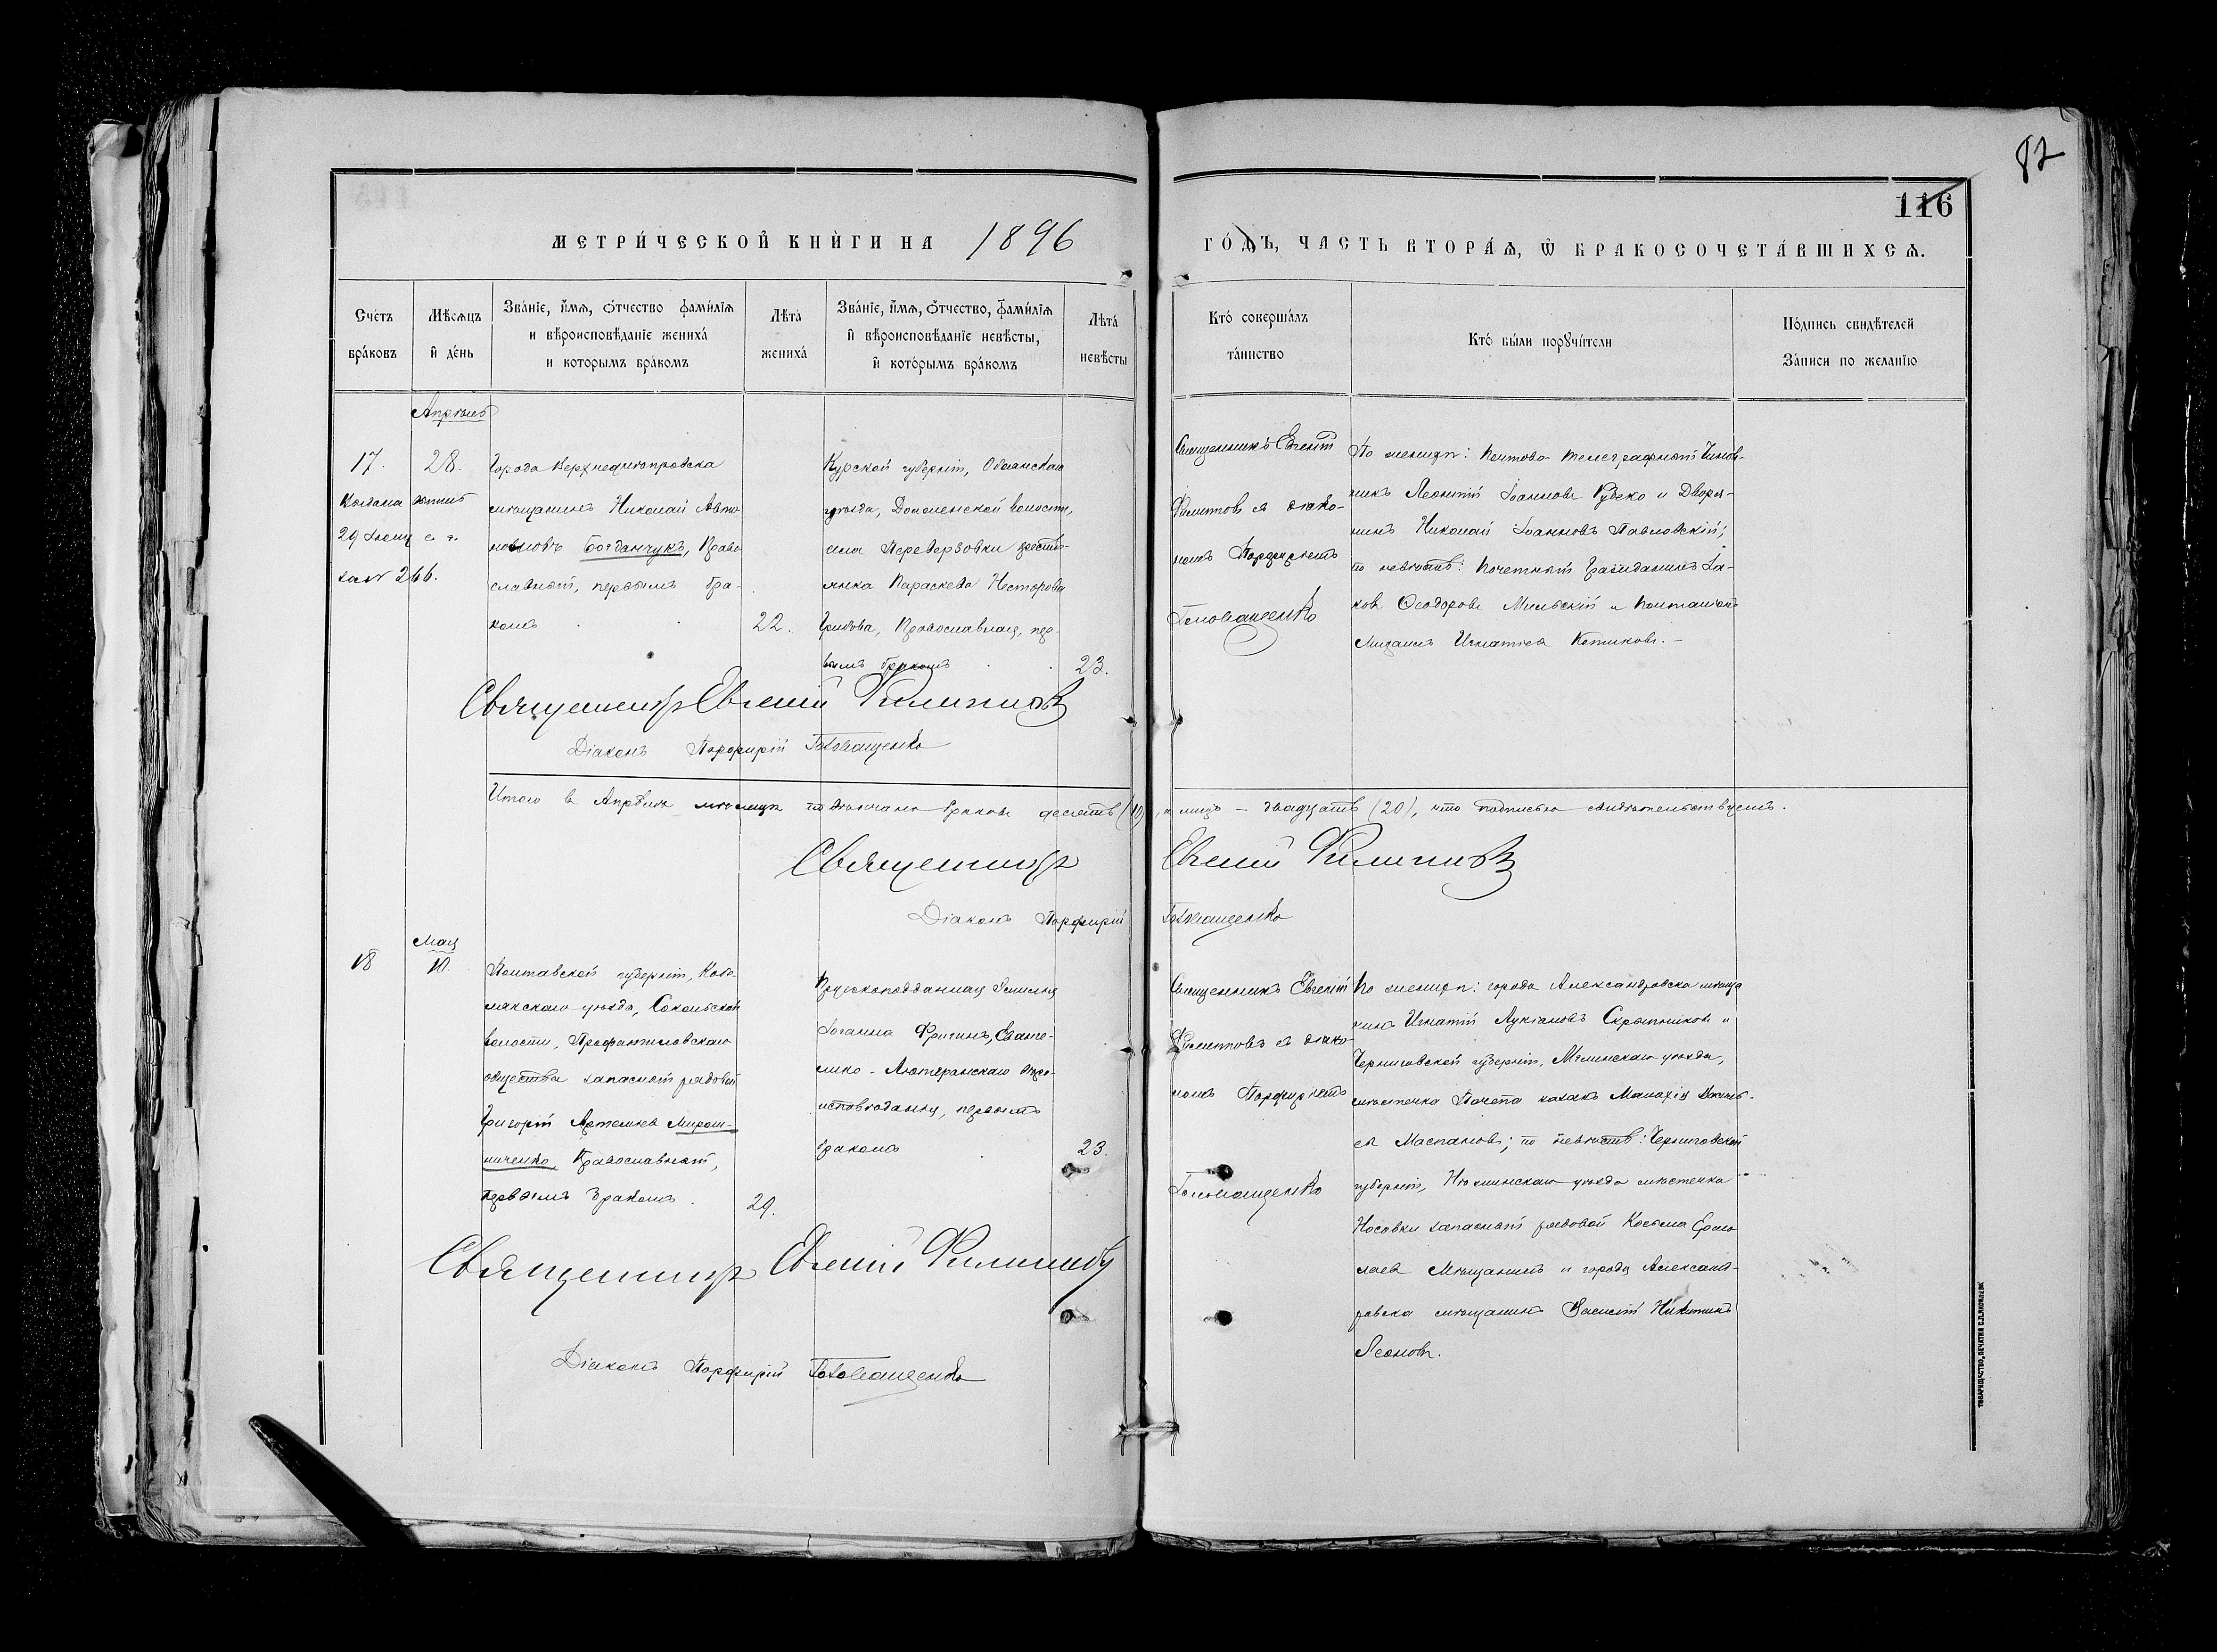 82
116
МЕТРИ́ЧЕСКОЙ КНИ́ГИ НА 1896
ГО́ДЪ, ЧАСТЬ ВТОРА́Ѧ, Ѽ БРАКОСОЧЕТА́ВШИХСѦ.
Счетъ
бра́ковъ
Мѣсѧцъ
и де́нь
Зва́нїе, и́мѧ, о́тчество фами́лїѧ
и вѣроисповѣ́данїе жениха́
и которымъ бра́комъ
Лѣта́
жениха́
Зва́нїе, и́мѧ, о́тчество, фами́лїѧ
и вѣроисповѣ́данїе невѣ́сты,
и кото́рымъ бра́комъ
Лѣта́
невѣ́сты
Кто́ соверша́лъ
та́инство
Кто́ бы́ли порꙋчи́тели
По́дпись свидѣ́телей
За́писи по жела́нїю
Апрѣль
17.
28.
29 Іюня с. г.
за № 266.
Города Верхнеднѣпровска
мѣщанинъ Николай Авто-
номовъ Богданчукъ, Право-
славный, первымъ бра-
комъ
22.
Курской губерніи, Обоянскаго
уѣзда, Долженской волости,
села Переверзовки кресть-
янка Параскева Несторова
Грибова, Православная, пер-
вымъ бракомъ
23.
Священникъ Евгеній
Филиповъ съ діако-
номъ Порфиріемъ
Головащенко
По женихѣ: Почтово-телеграфный Чинов-
никъ Леонтій Іоанновъ Рубско и Дворя-
нинъ Николай Іоанновъ Павловскій;
по невѣстѣ: Почетный Гражданинъ Іа-
ковъ Ѳеодоровъ Мильскій и Почталіонъ
Михаилъ Игнатіевъ Котиковъ. –
Священникъ Евгеній Филиповъ
Діаконъ Порфирій Головащенко
Итого въ Апрѣлѣ мѣсяцѣ повѣнчано браковъ десять (10), а лицъ – двадцать (20), что подписью свидѣтельствуемъ.
Священникъ Евгеній Филиповъ
Діаконъ Порфирій Головащенко
Мая
18
10.
Полтавской губерніи, Кобе-
лякскаго уѣзда, Сокольской
волости,
общества запасный рядовой
Григорій Артемьевъ Мирош-
ниченко, Православный,
первымъ бракомъ.
29.
Прусскоподданная Эмилія
Іоганна Фригинъ, Еванге-
лико-Лютеранскаго вѣро-
исповѣданія, первымъ
бракомъ
23.
Священникъ Евгеній
Филиповъ съ діако-
номъ Порфиріемъ
Головащенко
По женихѣ: города Александровска мѣща-
нинъ Игнатій Лукіановъ Скрыпниковъ и
Черниговской губерніи, Мглинскаго уѣзда,
мѣстечка Почепа казакъ Малахій
Маспановъ; по невѣстѣ: Черниговской
губерніи, Нѣжинскаго уѣзда мѣстечка
Носовки запасный рядовой Косьма Ермо-
лаевъ Мѣщанинъ и города Александ-
ровска мѣщанинъ Василій Никитинъ
Леоновъ.
Священникъ Евгеній Филиповъ
Діаконъ Порфирій Головащенко
ТОВАРИЩЕСТВО „ПЕЧАТНЯ С.П.ЯКОВЛЕВА“